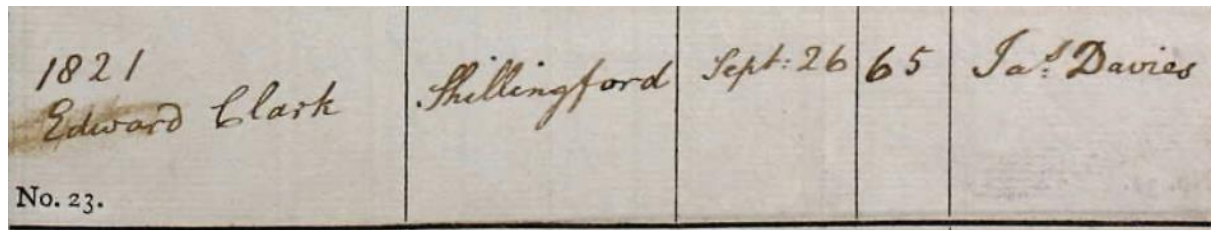 1821
Edward Clark
Shillingford
Sept: 26
65
Jas: Davies
No. 23.